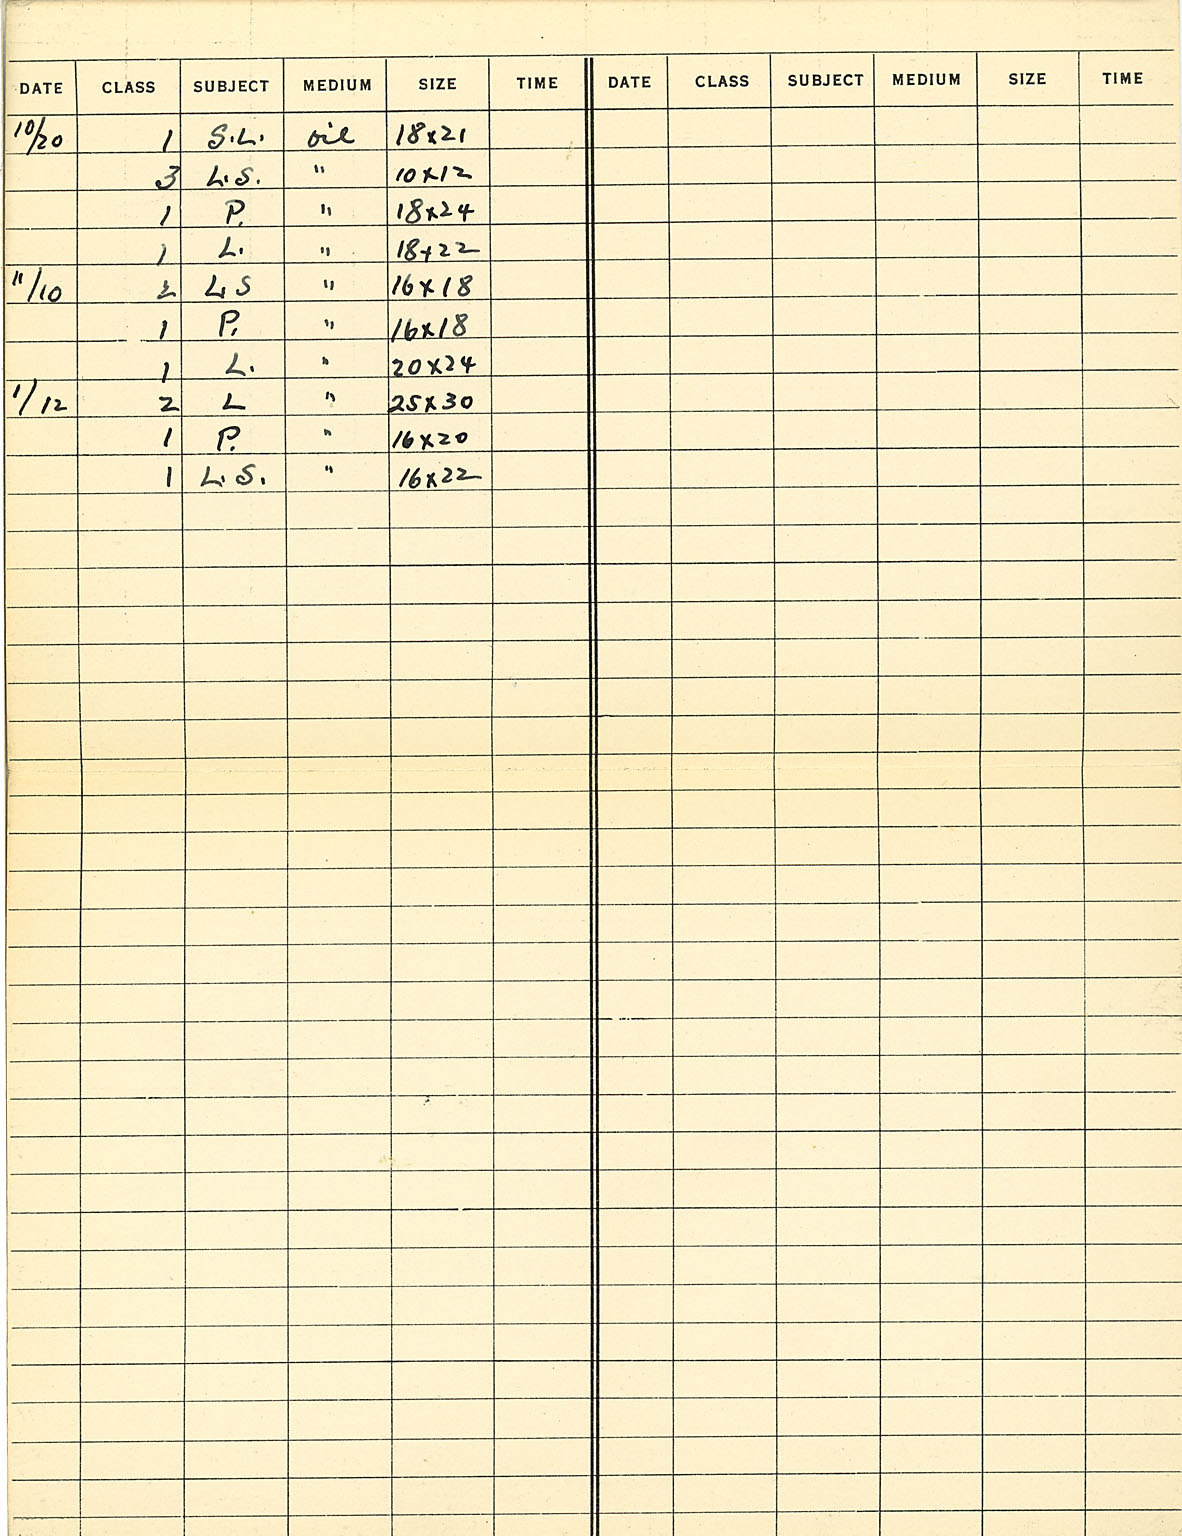 DATE CLASS SUBJECT MEDIUM SIZE TIME DATE CLASS SUBJECT MEDIUM SIZE TIME
10/20 1 S.L. oil 18x21
3 L.S. " 10x12
1 P. " 18x24
1 L. " 18x22
11/10 2 L.S " 16x18
1 P. " 16x18
1 L. " 20x24
1/12 2 L " 25x30
1 P. " 16x20
1 L.S. " 16x22